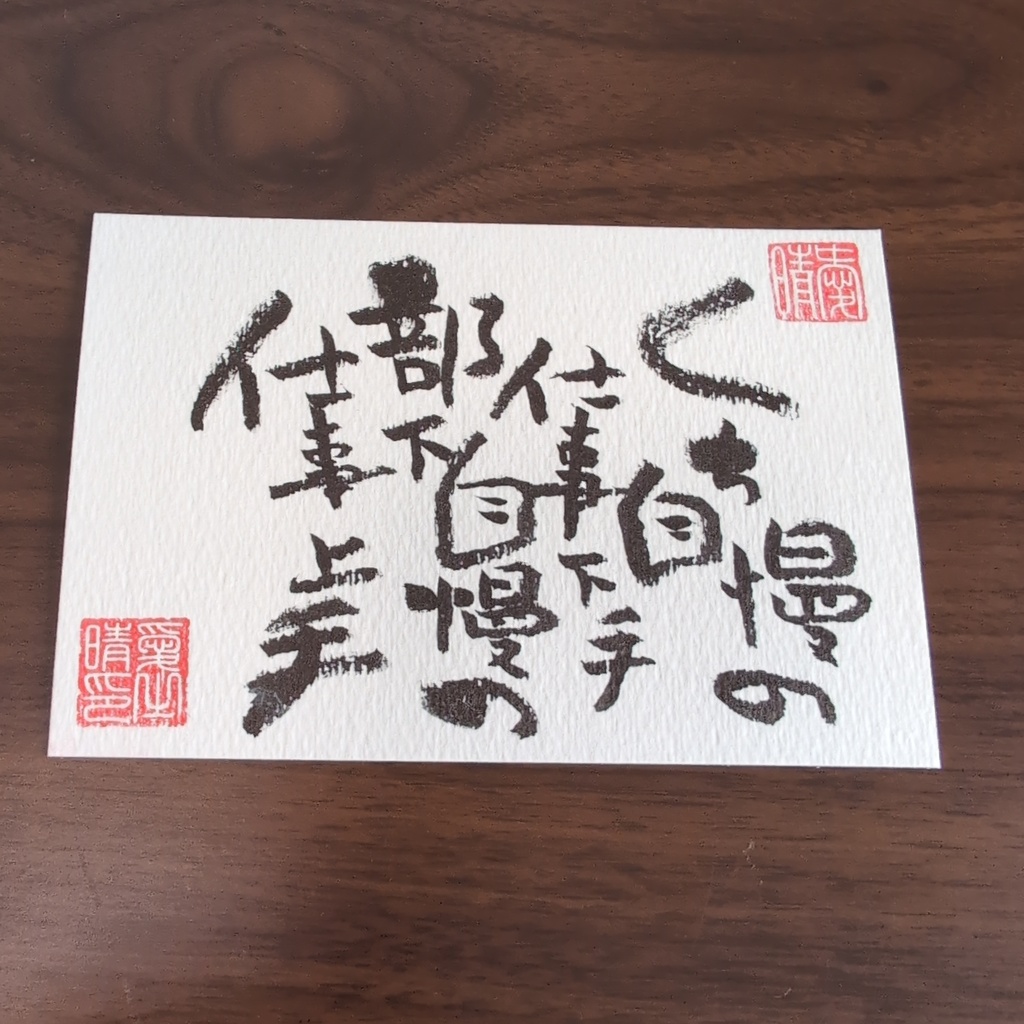 くち自慢の
仕事下手
部下自慢の
仕事上手